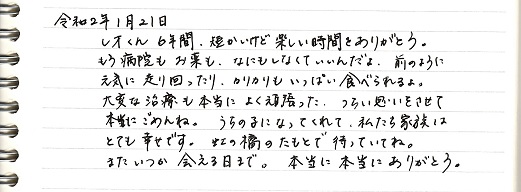 令和2年1月21日
レオくん 6年間、短かいけど楽しい時間をありがとう。
もう病院もお薬も、なにもしなくていいんだよ。前のように
元気に走り回ったり、カリカリもいっぱい食べられるよ。
大変な治療も本当によく頑張った。つらい思いをさせて
本当にごめんね。うちの子になってくれて、私たち家族は
とても幸せです。虹の橋のたもとで待っていてね。
またいつか会える日まで。本当に本当にありがとう。